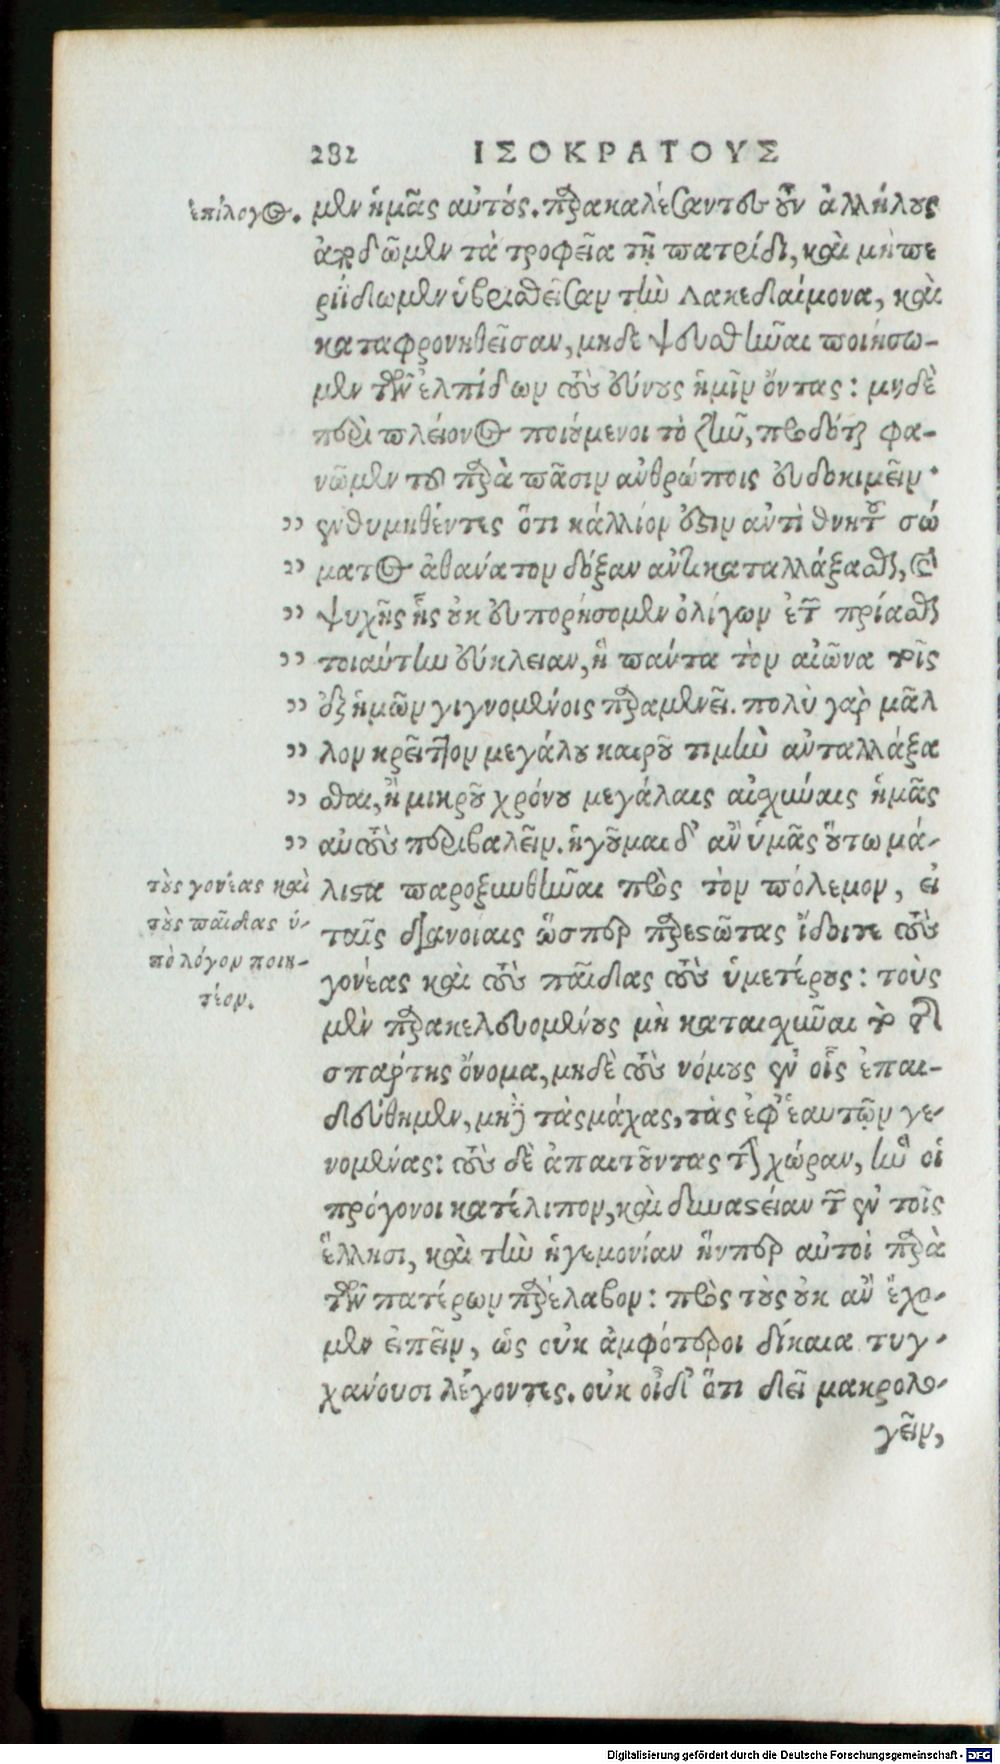 282 ΙΣΟΚΡΑΤΟΥΣ
ἐπίλογος. μεν ἡμᾶς αὐτούς. παρακαλέσαντες οὖν ἀλλήλους
ἀποδῶμεν τὰ τροφεῖα τῇ πατρίδι, καὶ μὴ πε
ριΐδωμεν ὑβρισθεῖσαν τὴν Λακεδαίμονα, καὶ
καταφρονηθεῖσαν, μηδὲ ψευσθῆναι ποιήσω-
μεν τῶν ἐλπίδων τοὺς εὔνους ἡμῖν ὄντας: μηδὲ
περὶ πλείονος ποιούμενοι τὸ ζῆν, προδόται φα-
νῶμεν τοῦ παρὰ πᾶσιν ἀνθρώποις εὐδοκιμεῖν·
,, ἐνθυμηθέντες ὅτι κάλλιόν ἐστιν ἀντὶ θνητοῦ σώ
,, ματος ἀθάνατον δόξαν ἀντικαταλλάξασθαι, καὶ
,, ψυχῆς ἧς οὐκ εὐπορήσομεν ὀλίγων ἐτῶν πρίασθαι
,, τοιαύτην εὔκλειαν, ἣ πάντα τὸν αἰῶνα τοῖς
,, ἐξ ἡμῶν γιγνομένοις παραμενεῖ. πολὺ γὰρ μᾶλ
,, λον κρεῖττον μεγάλου καιροῦ τιμὴν ἀνταλλάξα
,, σθαι, ἢ μικροῦ χρόνου μεγάλαις αἰσχύναις ἡμᾶς
,, αὐτοὺς περιβαλεῖν. ἡγοῦμαι δ' ἂν ὑμᾶς οὕτω μά-
λιστα παροξυνθῆναι πρὸς τὸν πόλεμον, εἰ
τοὺς γονέας καὶ
τοὺς παῖδας ὑ-
πὸ λόγον ποιη-
τέον.
ταῖς διανοίαις ὥσπερ παρεστῶτας ἴδοιτε τοὺς
γονέας καὶ τοὺς παῖδας τοὺς ὑμετέρους: τοὺς
μὲν παρακελευομένους μὴ καταισχῦναι τὸ τῆς
σπάρτης ὄνομα, μηδὲ τοὺς νόμους ἐν οἷς ἐπαι-
δεύθημεν, μηδὲ τὰς μάχας, τὰς ἐφ' ἑαυτῶν γε-
νομένας: τοὺς δὲ ἀπαιτοῦντας τὴν χώραν, ἣν οἱ
πρόγονοι κατέλιπον, καὶ δυναστείαν τὴν ἐν τοῖς
ἕλλησι, καὶ τὴν ἡγεμονίαν ἥνπερ αὐτοὶ παρὰ
τῶν πατέρων παρέλαβον: πρὸς τοὺς οὐκ ἂν ἔχο-
μεν εἰπεῖν, ὡς οὐκ ἀμφότεροι δίκαια τυγ-
χάνουσι λέγοντες. οὐκ οἶδ' ὅτι δεῖ μακρολο-
γεῖν,
Digitalisierung gefördert durch die Deutsche Forschungsgemeinschaft - DFG